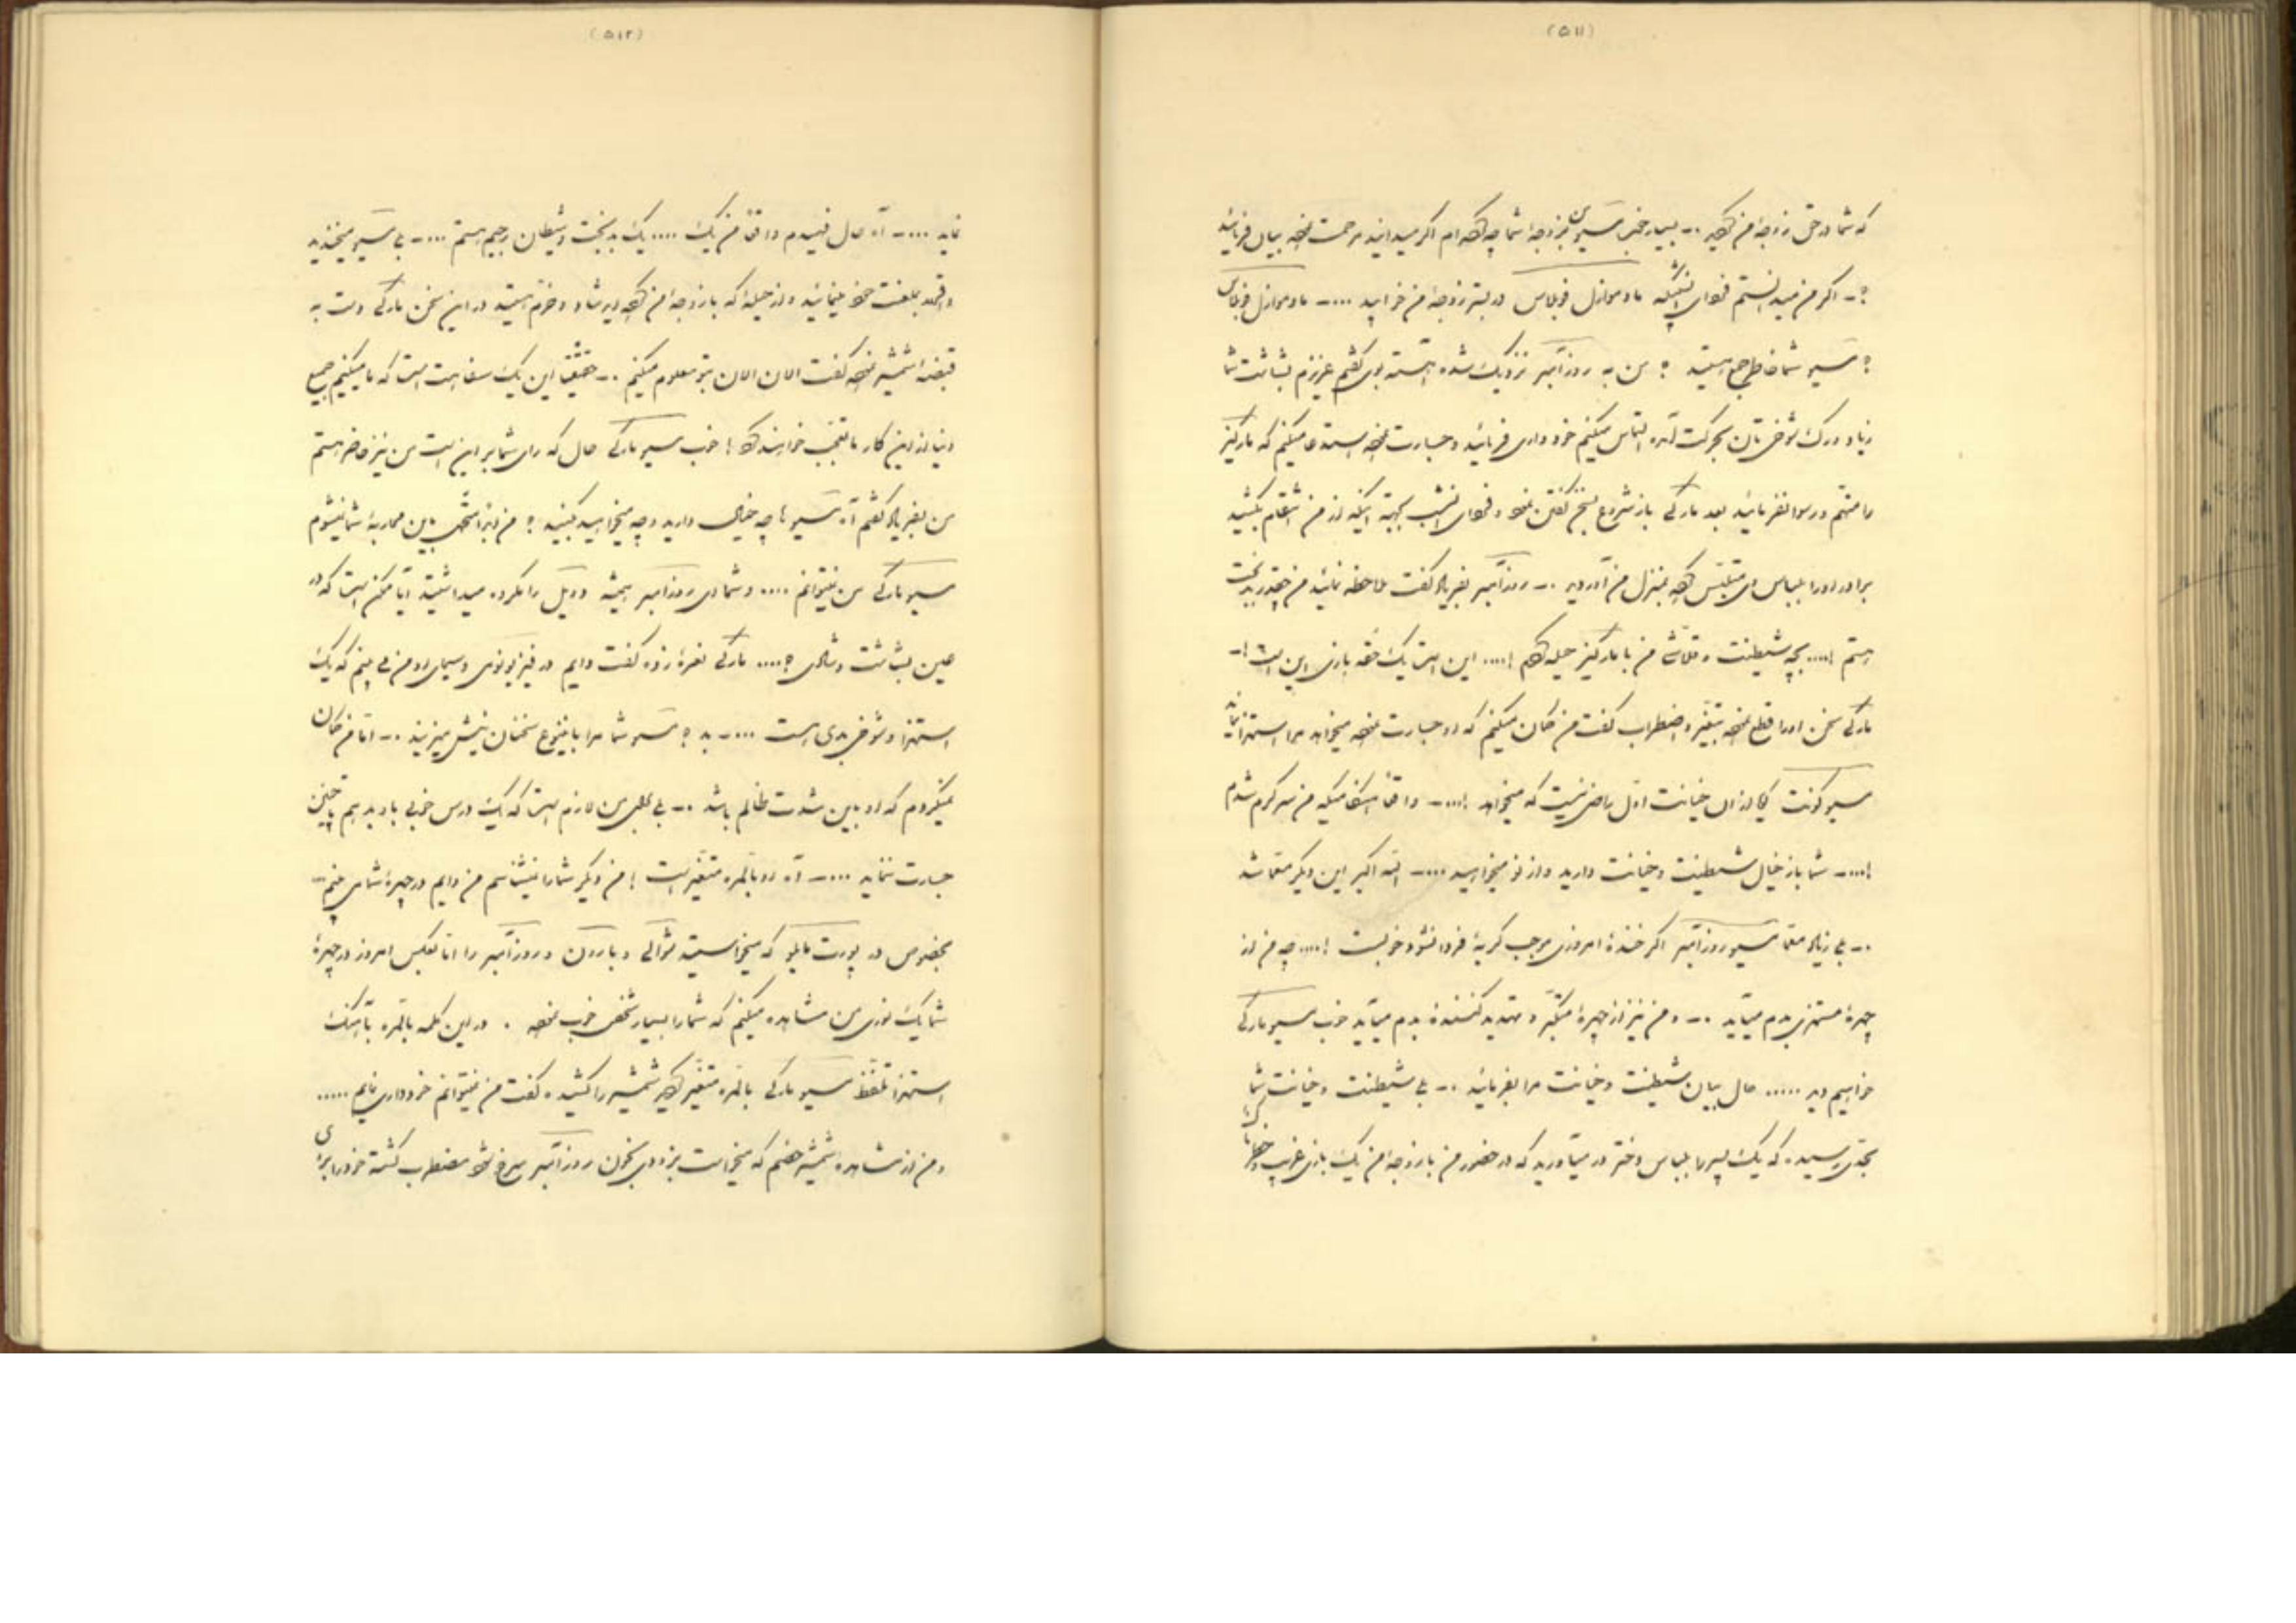 (۵۱۱)
که شما در حق زوجهٔ من کرده‌اید .- بسیار خوب مسیو من بزوجهٔ شما چه کرده‌ام اگر میدانید مرحمت نموده بیان فرمائید
؟- اگر من میدانستم فردای آنشبیکه مادموازل دربستر زوجهٔ من خوابید ....- مادموازل
؟ مسیو شما خاطر جمع هستید ؟ من به روزآمبر نزدیک شده آهسته بوی گفتم عزیزم بشاشت شما
زیاد و رگ شوخی‌تان بحرکت آمده التماس میکنم خودداری فرمائید و جسارت نموده استدعا میکنم که مارکیز
را متهم و رسوا نفرمائید بعد مارکی باز شروع بسخن گفتن نمود و فردای آنشب بجهة اینکه از من انتقام بکشید
برادر او را بلباس او متلبس کرده بمنزل من آوردید .- روزآمبر بفریاد گفت ملاحظه نمائید من چقدر بدبخت
هستم !.... بچه شیطنت و قلاشی من با مارکیز حیله کردم !.... این است یک حقه بازی این است !-
مارکی سخن او را قطع نموده بتغیر و اضطراب گفت من گمان میکنم که او جسارت نموده میخواهد مرا استهزا نماید
مسیو کونت یکی از آن خیانت اول راضی نیست که میخواهد !....- واقعا من سرگرم شدم
!....- شما باز خیال شیطنت و خیانت دارید و از نو میخواهید ....- الله اکبر این دیگر معما شد
.- بی زیاد معما مسیو روزآمبر اگر خندهٔ امروزی موجب گریهٔ فردا نشود خوبست !.... چه من از
چهرهٔ مستهزی بدم میآید .- و من نیز از چهرهٔ متکبر و تهدید کنندهٔ بدم میآید خوب مسیو مارکی
خواهیم دید ..... حال بیان شیطنت و خیانت مرا بفرمائید .- بی شیطنت و خیانت شما
بحدی رسیده که یک پسر را بلباس دختر در میآورید که در حضور من با زوجهٔ من یک بازی غریب
(۵۱۲)
نماید ....- آه حال فهمیدم واقعا من یک .... یک بدبخت و شیطان رجیم هستم ....- بی مسیو میخندید
بلعنت خود مینمائید و از حیلهٔ که با زوجهٔ من کرده‌اید شاد و خرم هستید در این سخن مارکی دست به
قبضهٔ شمشیر نموده گفت الان الان بتو معلوم میکنم .- حقیقتاً این یک سفاهت است که ما میکنیم جمیع
دنیا از این کار ما تعجب خواهند کرد ! خوب مسیو مارکی حال که رای شما بر این است من نیز حاضر هستم
من بفریاد گفتم آه مسیوها چه خیال دارید و چه میخواهید بکنید ؟ من باین محاربهٔ شما نمیشوم
مسیو مارکی من نمیتوانم .... و شما ای روزآمبر همیشه دوئل را مکروه میداشتید آیا ممکن است که در
عین بشاشت و شادی ؟.... مارکی نعرهٔ زده گفت دایم در و سیمای او من می بینم که یک
استهزا و شوخی بدی هست ....- بد ؟ مسیو شما مرا باینوع سخنان نیش میزنید .- اما من گمان
نمیکردم که او باین شدت ظالم باشد .- بی بلی من لازم است که یک درس خوبی باو بدهم تا چنین
جسارت ننماید ....- آه او بالمره متغیر است ! من دیگر شما را نمیشناسم من دایم در چهرهٔ شما می بینم
بخصوص در پورت مایلو که میخواستید و بارون و روزآمبر را اما بعکس امروز در چهرهٔ
شما یک نوری من مشاهده میکنم که شما را بسیار شخص خوب نموده . در این کلمه بالمره بآهنگ
استهزا تلفظ مسیو مارکی بالمره متغیر کرده شمشیر را کشیده گفت من نمیتوانم خودداری نمایم .....
و من از مشاهده شمشیر خصم که میخواست بزودی بخون روزآمبر سرخ شود مضطرب گشته خود را برای